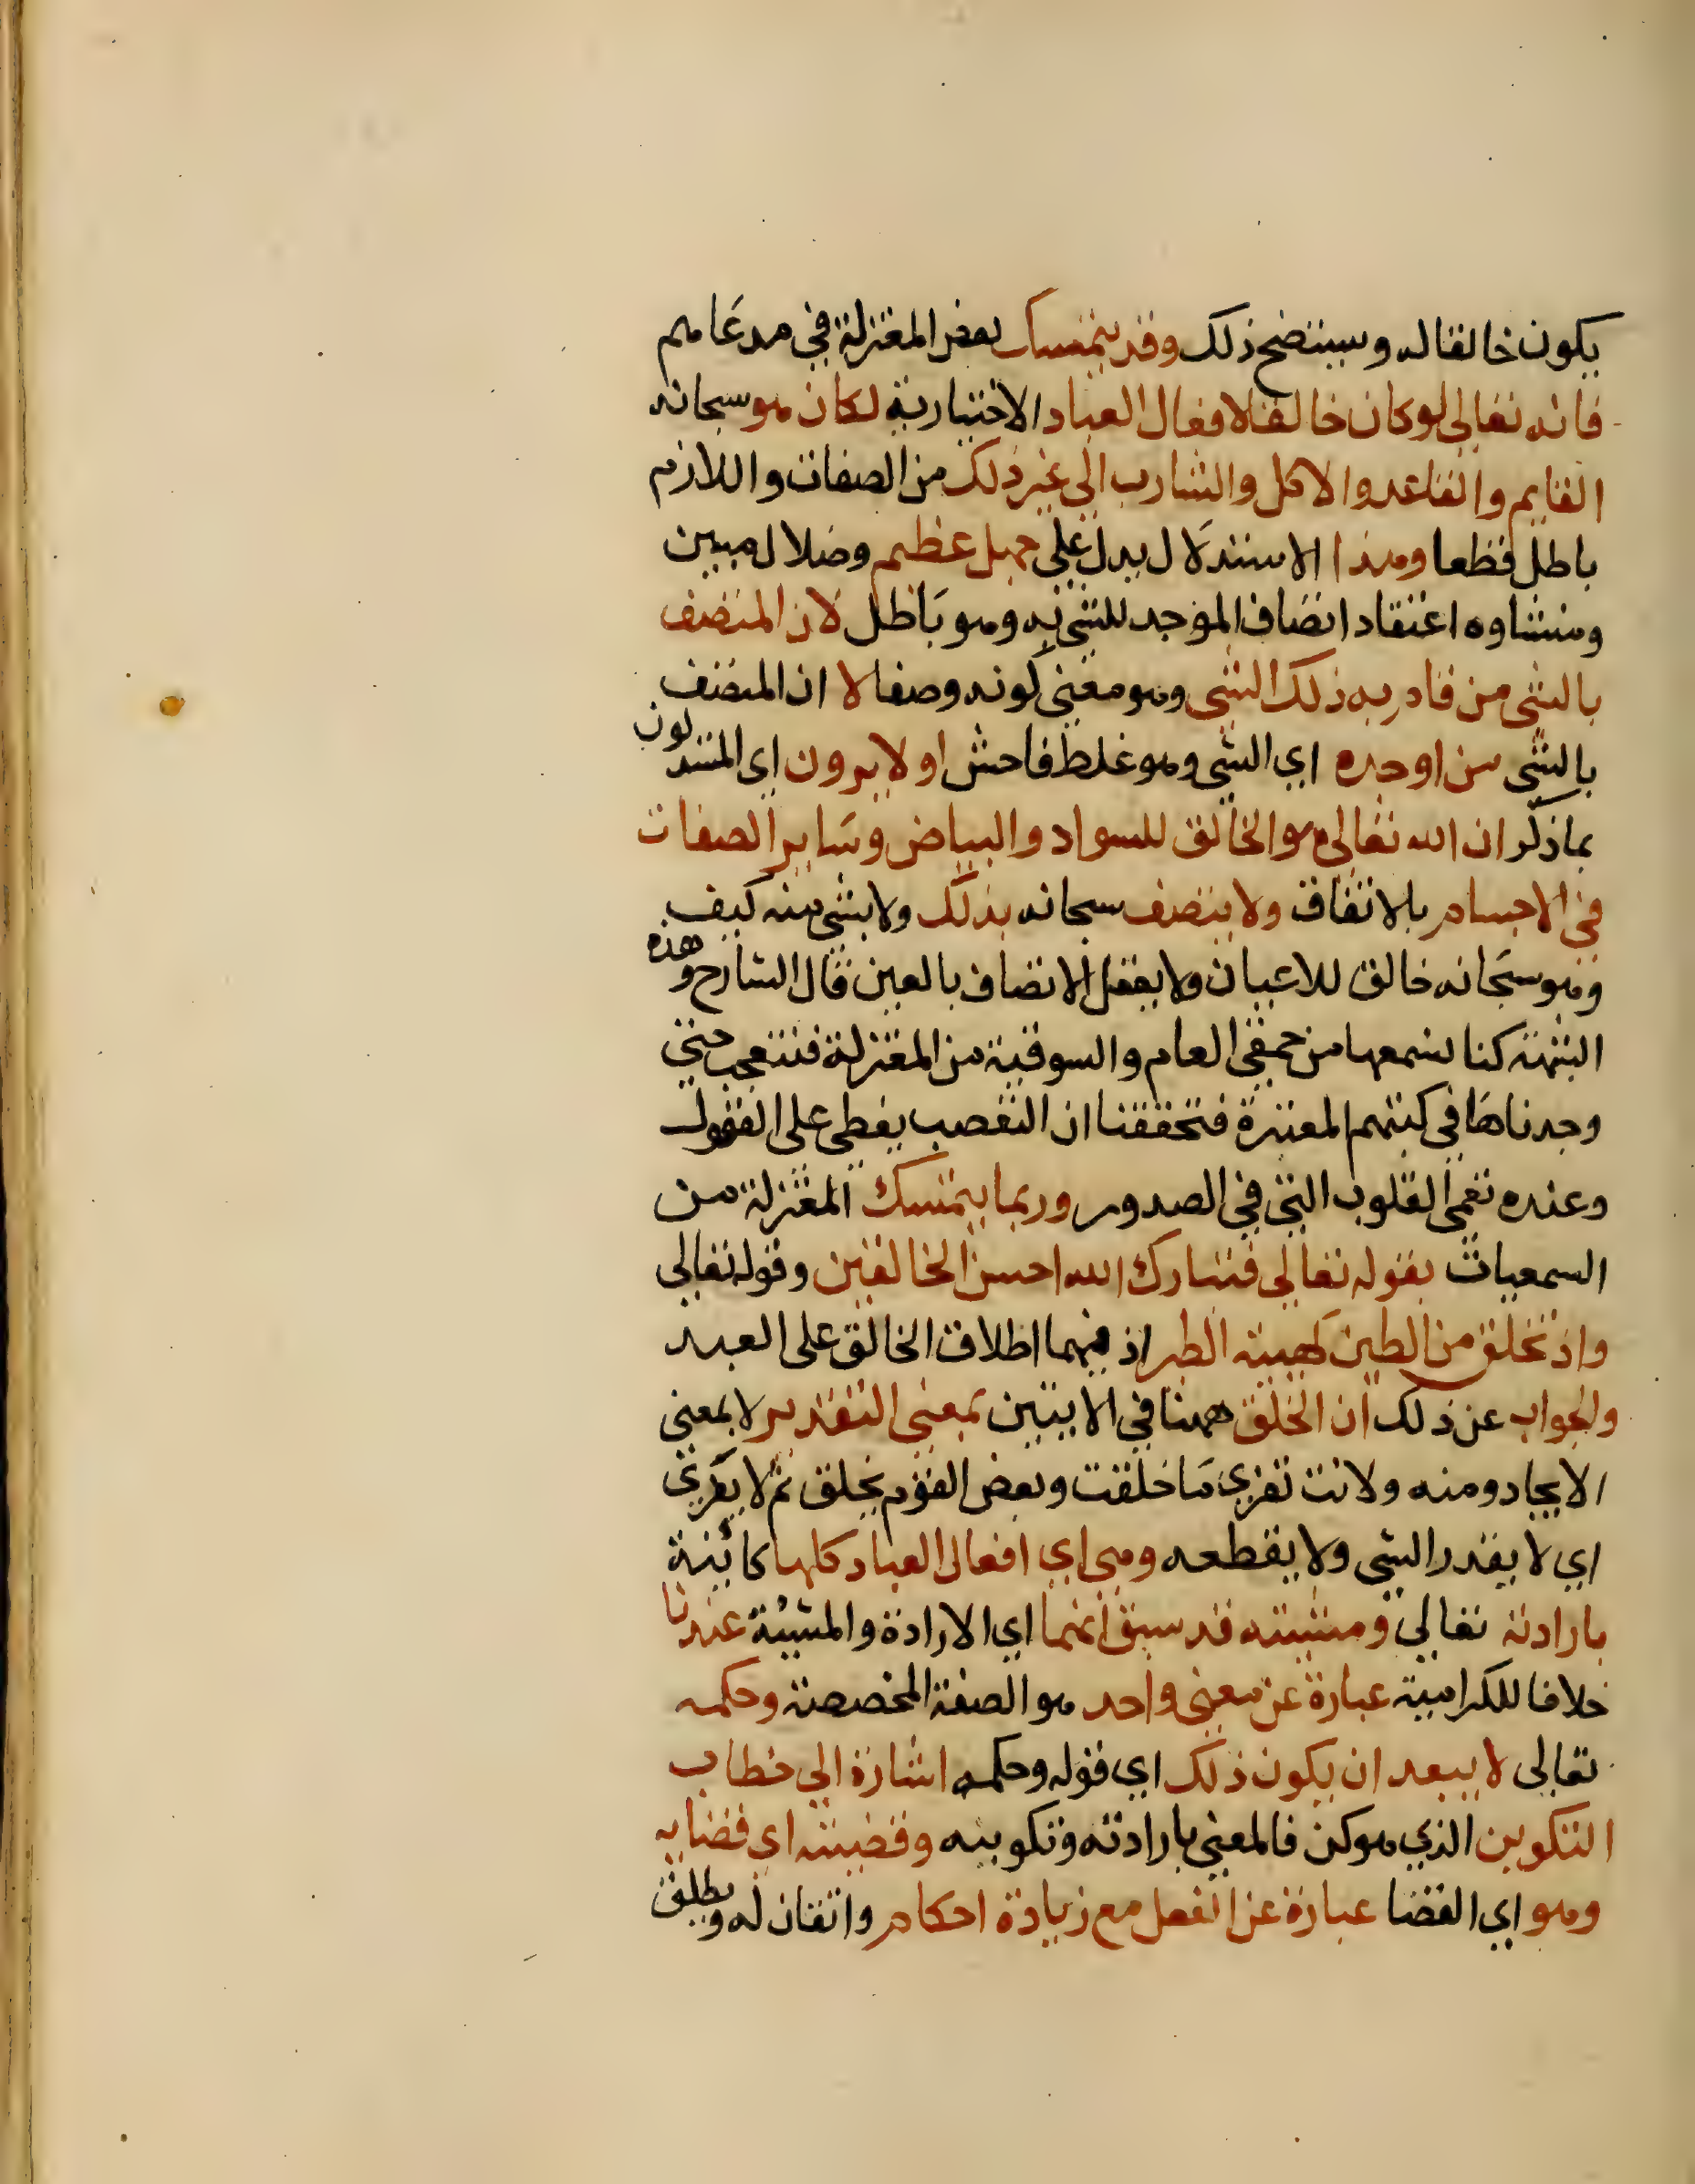 يكون خالقا له وسيتضح ذلك وقد يتمسك بعض المعتزلة في مدعاهم
فانه تعالى لو كان خالقا لافعال العباد الاختيارية لكان هو سبحانه
القايم والقاعد والاكل والشارب الى غير ذلك من الصفات واللازم
باطل قطعا وهذا الاستدلال يدل على جهل عظيم وضلال مبين
ومنشاوه اعتقاد اتصاف الموجد للشي به وهو باطل لان المتصف
بالشي من قام به ذلك الشي وهو معنى كونه وصفا لا ان المتصف
بالشي من اوجده اي الشي وهو غلط فاحش او لا يرون اي المستدلون
بما ذكر ان الله تعالى هو الخالق للسواد والبياض وساير الصفات
في الاجسام بالاتفاق ولا يتصف سبحانه بذلك ولا بشي منه كيف
وهو سبحانه خالق للاعيان ولا يعقل الاتصاف بالعين قال الشارح وهذه
الشبهة كنا نسمعها من حمقى العام والسوقية من المعتزلة فنتعجب حتى
وجدناها في كتبهم المعتبرة فتحققنا ان التعصب يغطي على العقول
وعنده تعمى القلوب التي في الصدور وربما يتمسك المعتزلة من
السمعيات بقوله تعالى فتبارك الله احسن الخالقين وقوله تعالى
واذ تخلق من الطين كهيئة الطير اذ فيهما اطلاق الخالق على العبد
والجواب عن ذلك ان الخلق ههنا في الايتين بمعنى التقدير لا بمعنى
الايجاد ومنه ولانت تفري ما خلقت وبعض القوم يخلق ثم لا يفري
اي لا يقدر الشي ولا يقطعه وهي اي افعال العباد كلها كائنة
بارادته تعالى ومشيته قد سبق انهما اي الارادة والمشيئة عندنا
خلافا للكرامية عبارة عن معنى واحد هو الصفة المخصصة وحكمه
تعالى لا يبعد ان يكون ذلك اي قوله وحكمه اشارة الى خطاب
التكوين الذي هو كن فالمعنى بارادته وتكوينه وقضيته اي قضايه
وهو اي القضا عبارة عن الفعل مع زيادة احكام واتقان له ويطلق